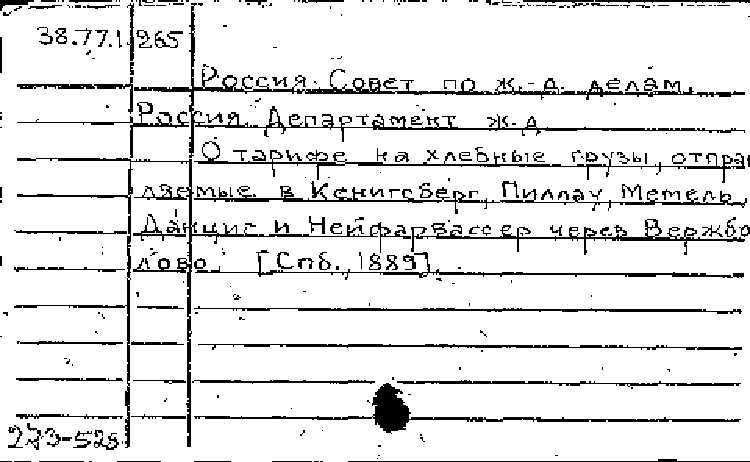 38.77.1.265
Россия. Совет по ж.-д. делам.
Россия. Департамент ж.-д.
О тарифе на хлебные грузы, отправ
ляемые в Кенигсберг, Пиллау, Мемель,
Данциг и Нейфарвассер через Вержбо
лово. [Спб., 1889].
273-528